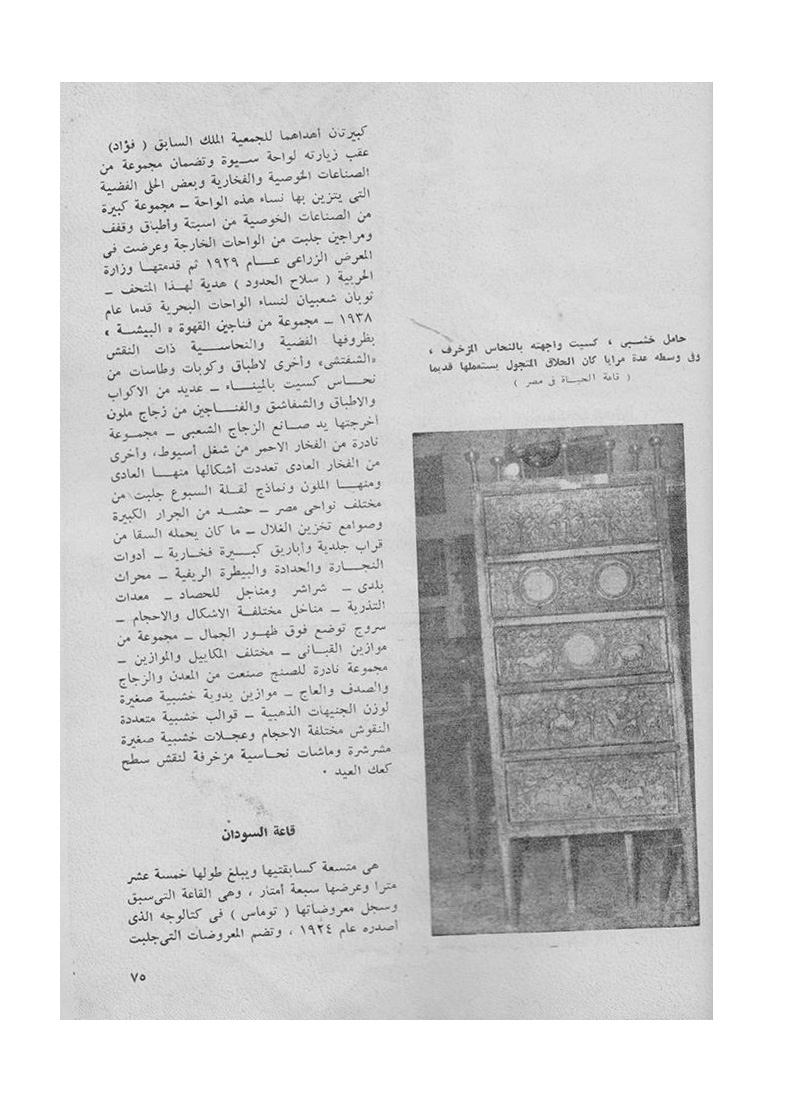 كبيرتان أهداهما للجمعية الملك السابق ( فؤاد)
عقب زيارته لواحة سيوة وتضمان مجموعة من
الصناعات الخوصية والفخارية وبعض الحلى الفضية
التى يتزين بها نساء هذه الواحة – مجموعة كبيرة
من الصناعات الخوصية من اسبتة وأطباق وقفف
ومراجين جلبت من الواحات الخارجة وعرضت فى
المعرض الزراعى عام ١٩٢٩ ثم قدمتها وزارة
الحربية ( سلاح الحدود ) هدية لهذا المتحف –
ثوبان شعبيان لنساء الواحات البحرية قدما عام
١٩٣٨ – مجموعة من فناجين القهوة « البيشة »
بظروفها الفضية والنحاسية ذات النقش
«الشفتشى» وأخرى لاطباق وكوبات وطاسات من
نحاس كسيت بالميناء – عديد من الاكواب
والاطباق والشفاشق والفناجين من زجاج ملون
أخرجتها يد صانع الزجاج الشعبى – مجموعة
نادرة من الفخار الاحمر من شغل أسيوط، وأخرى
من الفخار العادى تعددت أشكالها منها العادى
ومنها الملون ونماذج لقلة السبوع جلبت من
مختلف نواحى مصر – حشد من الجرار الكبيرة
وصوامع تخزين الغلال – ما كان يحمله السقا من
قراب جلدية وأباريق كبيرة فخارية – أدوات
النجارة والحدادة والبيطرة الريفية – محراث
بلدى – شراشر ومناجل للحصاد – معدات
التذرية – مناخل مختلفة الاشكال والاحجام –
سروج توضع فوق ظهور الجمال – مجموعة من
موازين القبانى – مختلف المكاييل والموازين –
مجموعة نادرة للصنج صنعت من المعدن والزجاج
والصدف والعاج – موازين يدوية خشبية صغيرة
لوزن الجنيهات الذهبية – قوالب خشبية متعددة
النقوش مختلفة الاحجام وعجلات خشبية صغيرة
مشرشرة وماشات نحاسية مزخرفة لنقش سطح
كعك العيد .
قاعة السودان
هى متسعة كسابقتيها ويبلغ طولها خمسة عشر
مترا وعرضها سبعة أمتار ، وهى القاعة التى سبق
وسجل معروضاتها ( توماس ) فى كتالوجه الذى
أصدره عام ١٩٢٤ ، وتضم المعروضات التى جلبت
حامل خشبى ، كسيت واجهته بالنحاس المزخرف ،
وفى وسطه عدة مرايا كان الحلاق المتجول يستعملها قديما
( قاعة الحياة فى مصر )
٧٥